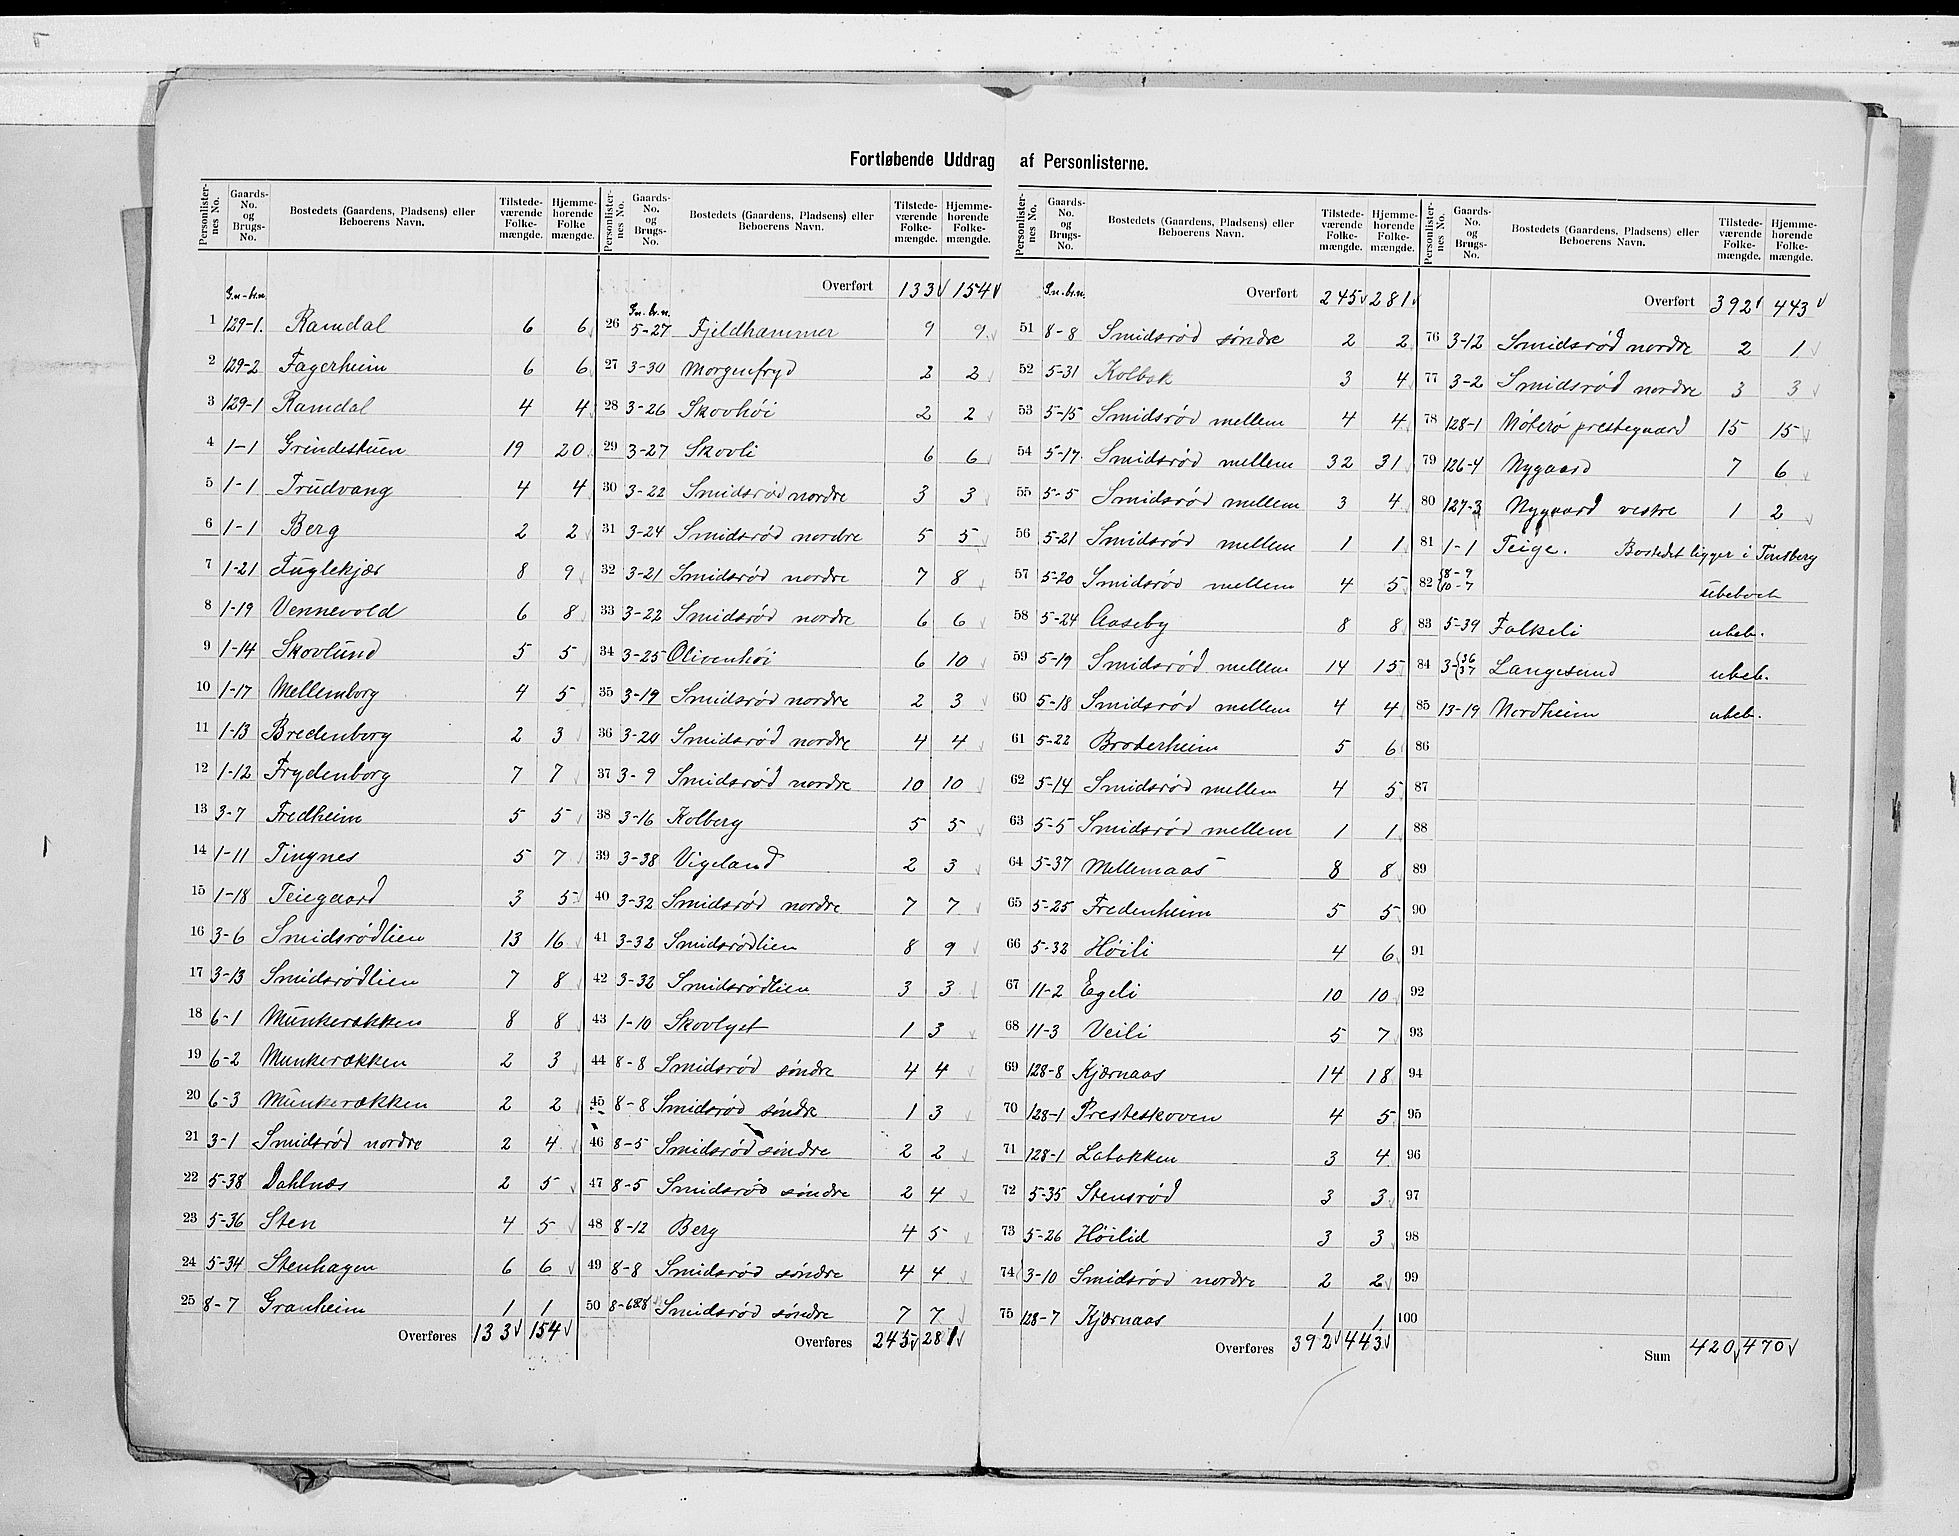 Fortløbende Uddrag af Personlisterne.
Personlister-nes No. Gaards-No. og Brugs-No. Bostedets (Gaardens, Pladsens) eller Beboerens Navn. Tilstede-værende Folke-mængde. Hjemme-hørende Folke mængde.
G.n.-br.n.
1 129-1. Ramdal 6 6
2 129-2 Fagerheim 6 6
3 129-1 Ramdal 4 4
4 1-1 Grindestuen 19 20
5 1-1 Trudvang 4 4
6 1-1 Berg 2 2
7 1-21 Fuglekjær 8 9
8 1-19 Vennevold 6 8
9 1-14 Skovlund 5 5
10 1-17 Mellemborg 4 5
11 1-13 Bredenborg 2 3
12 1-12 Frydenborg 7 7
13 3-7 Fredheim 5 5
14 1-11 Tingnes 5 7
15 1-18 Teiegaard 3 5
16 3-6 Smidsrødlien 13 16
17 3-13 Smidsrødlien 7 8
18 6-1 Munkerækken 8 8
19 6-2 Munkerækken 2 3
20 6-3 Munkerækken 2 2
21 3-1 Smidsrød nordre 2 4
22 5-38 Dahlnæs 2 5
23 5-36 Sten 4 5
24 5-34 Stenhagen 6 6
25 8-7 Granheim 1 1
Overføres 133 154
Personlister-nes No. Gaards-No. og Brugs-No. Bostedets (Gaardens, Pladsens) eller Beboerens Navn. Tilstede-værende Folke-mængde. Hjemme-hørende Folke-mængde.
Overført 133 154
G.n.-br.n.
26 5-27 Fjeldhammer 9 9
27 3-30 Morgenfryd 2 2
28 3-26 Skovhøi 2 2
29 3-27 Skovli 6 6
30 3-22 Smidsrød nordre 3 3
31 3-24 Smidsrød nordre 5 5
32 3-21 Smidsrød nordre 7 8
33 3-22 Smidsrød nordre 6 6
34 3-25 Olivenhøi 6 10
35 3-19 Smidsrød nordre 2 3
36 3-20 Smidsrød nordre 4 4
37 3-9 Smidsrød nordre 10 10
38 3-16 Kolberg 5 5
39 3-38 Vigeland 2 3
40 3-32 Smidsrød nordre 7 7
41 3-32 Smidsrødlien 8 9
42 3-32 Smidsrødlien 3 3
43 1-10 Skovlyst 1 3
44 8-8 Smidsrød søndre 4 4
45 8-8 Smidsrød søndre 1 3
46 8-5 Smidsrød søndre 2 2
47 8-5 Smidsrød søndre 2 4
48 8-12 Berg 4 5
49 8-8 Smidsrød søndre 4 4
50 8-6&8 Smidsrød søndre 7 7
Overføres 245 281
Personlister-nes No. Gaards-No. og Brugs-No. Bostedets (Gaardens, Pladsens) eller Beboerens Navn. Tilstede-værende Folke-mængde. Hjemme-hørende Folke-mængde.
G.n.-br.n. Overført 245 281
51 8-8 Smidsrød søndre 2 2
52 5-31 Kolbæk 3 4
53 5-15 Smidsrød mellem 4 4
54 5-17. Smidsrød mellem 32 31
55 5-5 Smidsrød mellem 3 4
56 5-21 Smidsrød mellem 1 1
57 5-20 Smidsrød mellem 4 5
58 5-24 Aaseby 8 8
59 5-19 Smidsrød mellem 14 15
60 5-18 Smidsrød mellem 4 4
61 5-22 Broderheim 5 6
62 5-14 Smidsrød mellem 4 5
63 5-5 Smidsrød mellem 1 1
64 5-37 Mellemaas 8 8
65 5-25 Fredenheim 5 5
66 5-32 Høili 4 6
67 11-2 Egeli 10 10
68 11-3 Veili 5 7
69 128-8 Kjærnaas 14 18
70 128-1 Presteskoven 4 5
71 128-1 Labakken 3 4
72 5-35 Stensrød 3 3
73 5-26 Høilid 3 3
74 3-10 Smidsrød nordre 2 2
75 128-7 Kjærnaas 1 1
Overføres 392 443
Personlister-nes No. Gaards-No. og Brugs-No. Bostedets (Gaardens, Pladsens) eller Beboerens Navn. Tilstede-værende Folke-mængde. Hjemme-hørende Folke-mængde.
Overført 392 443
76 3-12 Smidsrød nordre 2 1
77 3-2 Smidsrød nordre 3 3
78 128-1 Nøterø prestegaard 15 15
79 126-4 Nygaard 7 6
80 127-3 Nygaard vestre 1 2
81 1-1 Teige. Bostedet ligger i Tønsberg
82 {8-9 10-7 ubeboet
83 5-39 Falkeli ubeb.
84 3-{36 37 Langesund ubeb.
85 13-19 Nordheim ubeb.
86
87
88
89
90
91
92
93
94
95
96
97
98
99
100
Sum 420 470